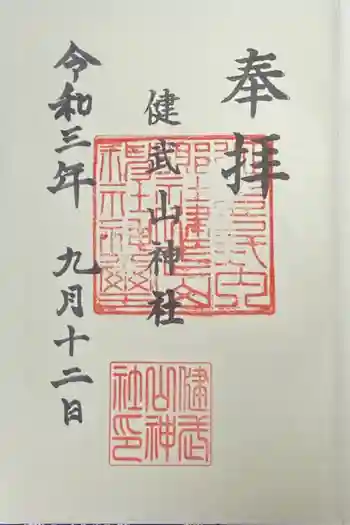 奉拝
健武山神社
令和三年 九月十二日
健武
山神
社印